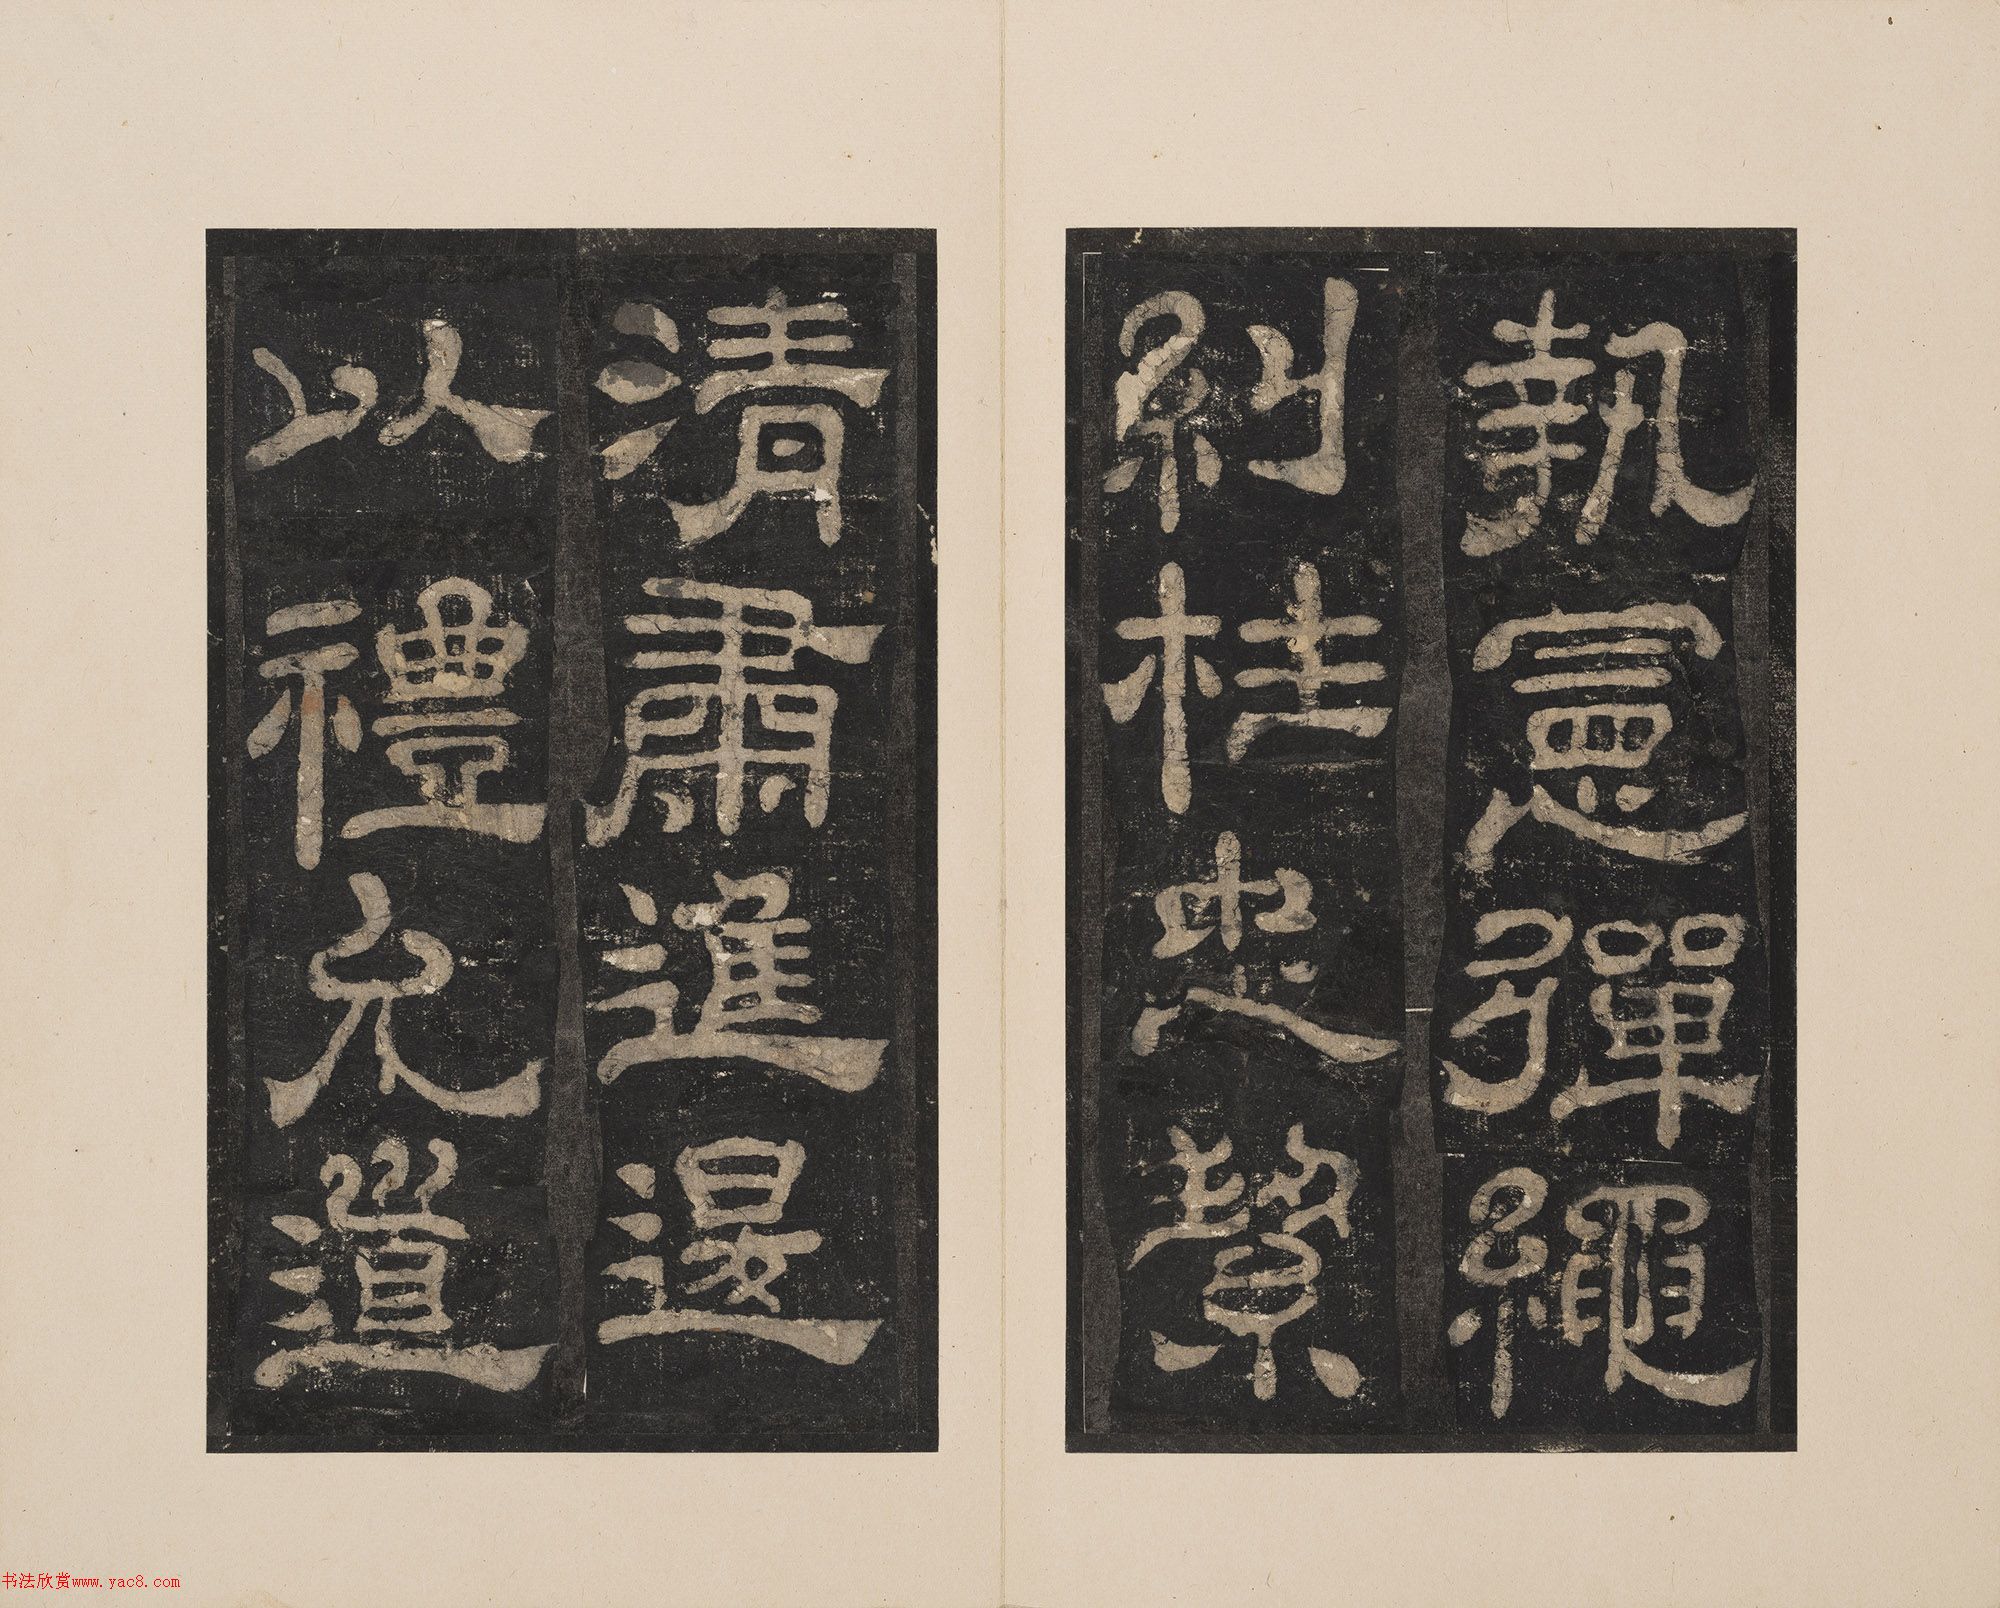 執憲彈繩
糾枉忠絜
清肅進退
以禮允道
书法欣赏www.yac8.com